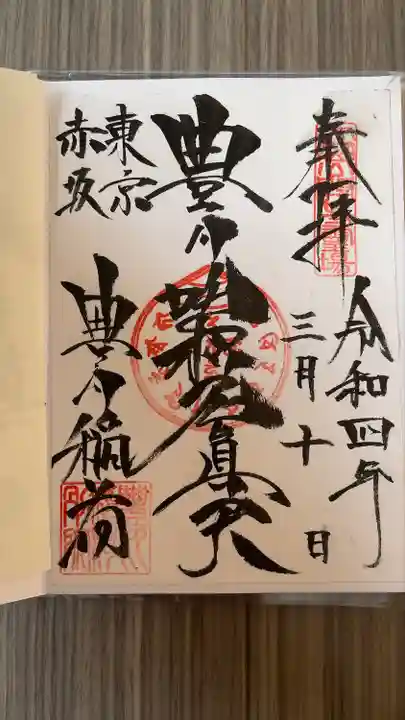 奉拝
令和四年
三月十日
豊川吒枳尼真天
東京
赤坂
豊川稲荷